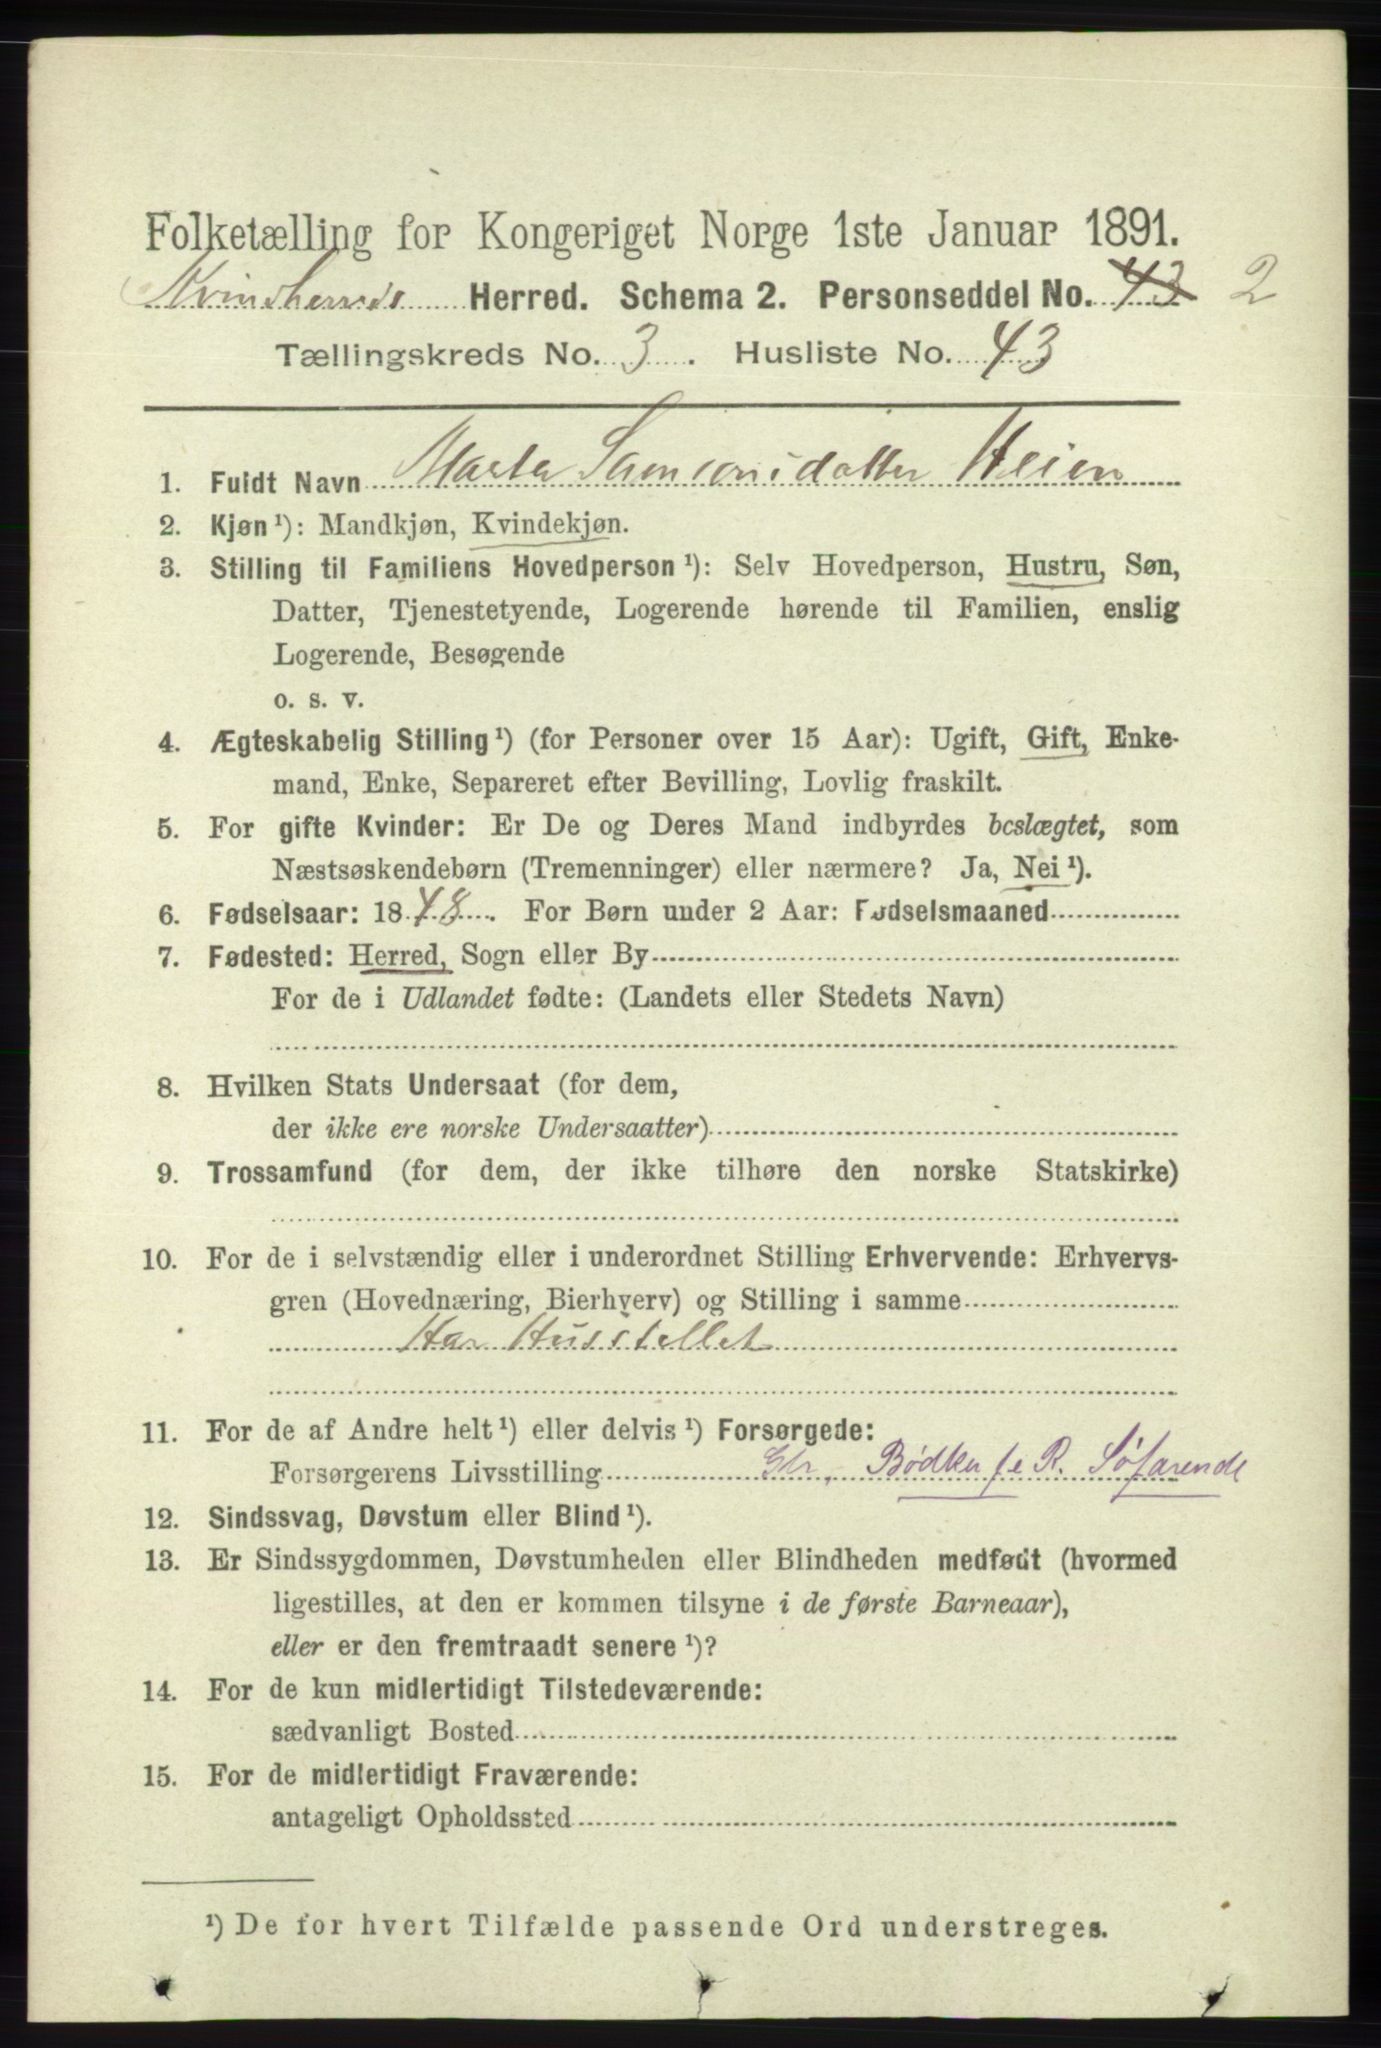 Folketælling for Kongeriget Norge 1ste Januar 1891.
Kvindherreds Herred. Schema 2. Personseddel No. 43 2
Tællingskreds No. 3. Husliste No. 43
1. Fuldt Navn Marta Samsonsdatter Heien
2. Kjøn ¹): Mandkjøn, Kvindekjøn.
3. Stilling til Familiens Hovedperson ¹): Selv Hovedperson, Hustru, Søn,
Datter, Tjenestetyende, Logerende hørende til Familien, enslig
Logerende, Besøgende
o. s. v.
4. Ægteskabelig Stilling ¹) (for Personer over 15 Aar): Ugift, Gift, Enke-
mand, Enke, Separeret efter Bevilling, Lovlig fraskilt.
5. For gifte Kvinder: Er De og Deres Mand indbyrdes beslægtet, som
Næstsøskendebørn (Tremenninger) eller nærmere? Ja, Nei ¹).
6. Fødselsaar: 1848. For Børn under 2 Aar: Fødselsmaaned
7. Fødested: Herred, Sogn eller By
For de i Udlandet fødte: (Landets eller Stedets Navn)
8. Hvilken Stats Undersaat (for dem,
der ikke ere norske Undersaatter)
9. Trossamfund (for dem, der ikke tilhøre den norske Statskirke)
10. For de i selvstændig eller i underordnet Stilling Erhvervende: Erhvervs-
gren (Hovednæring, Bierhverv) og Stilling i samme
Har Husstellet
11. For de af Andre helt ¹) eller delvis ¹) Forsørgede:
Forsørgerens Livsstilling Bødker R. Søfarende
12. Sindssvag, Døvstum eller Blind ¹).
13. Er Sindssygdommen, Døvstumheden eller Blindheden medfødt (hvormed
ligestilles, at den er kommen tilsyne i de første Barneaar),
eller er den fremtraadt senere ¹)?
14. For de kun midlertidigt Tilstedeværende:
sædvanligt Bosted
15. For de midlertidigt Fraværende:
antageligt Opholdssted
¹) De for hvert Tilfælde passende Ord understreges.